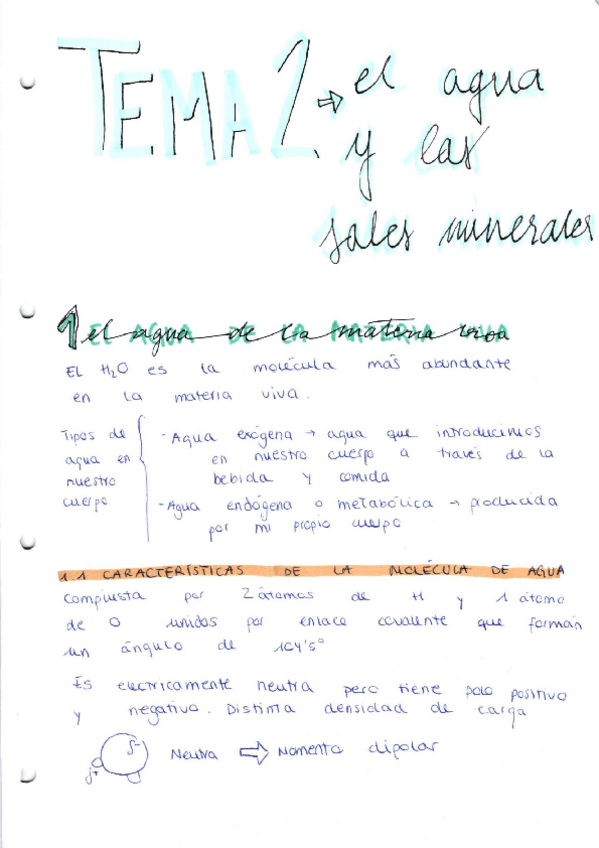 TEMA 2. ⇨ el agua
y las
sales minerales
1 el agua de la materia viva
EL AGUA DE LA MATERIA VIVA
EL H₂O es la molécula más abundante
en la materia viva.
Tipos de
agua en
nuestro
cuerpo
- Agua exógena → agua que introducimos
en nuestro cuerpo a través de la
bebida y comida
- Agua endógena o metabólica → producida
por mi propio cuerpo
1.1 CARACTERÍSTICAS DE LA MOLÉCULA DE AGUA
Compuesta por 2 átomos de H y 1 átomo
de O unidos por enlace covalente que forman
un ángulo de 104'5º
Es electricamente neutra pero tiene polo positivo
y negativo. Distinta densidad de carga
δ-
δ+
Neutra ⇨ Momento dipolar